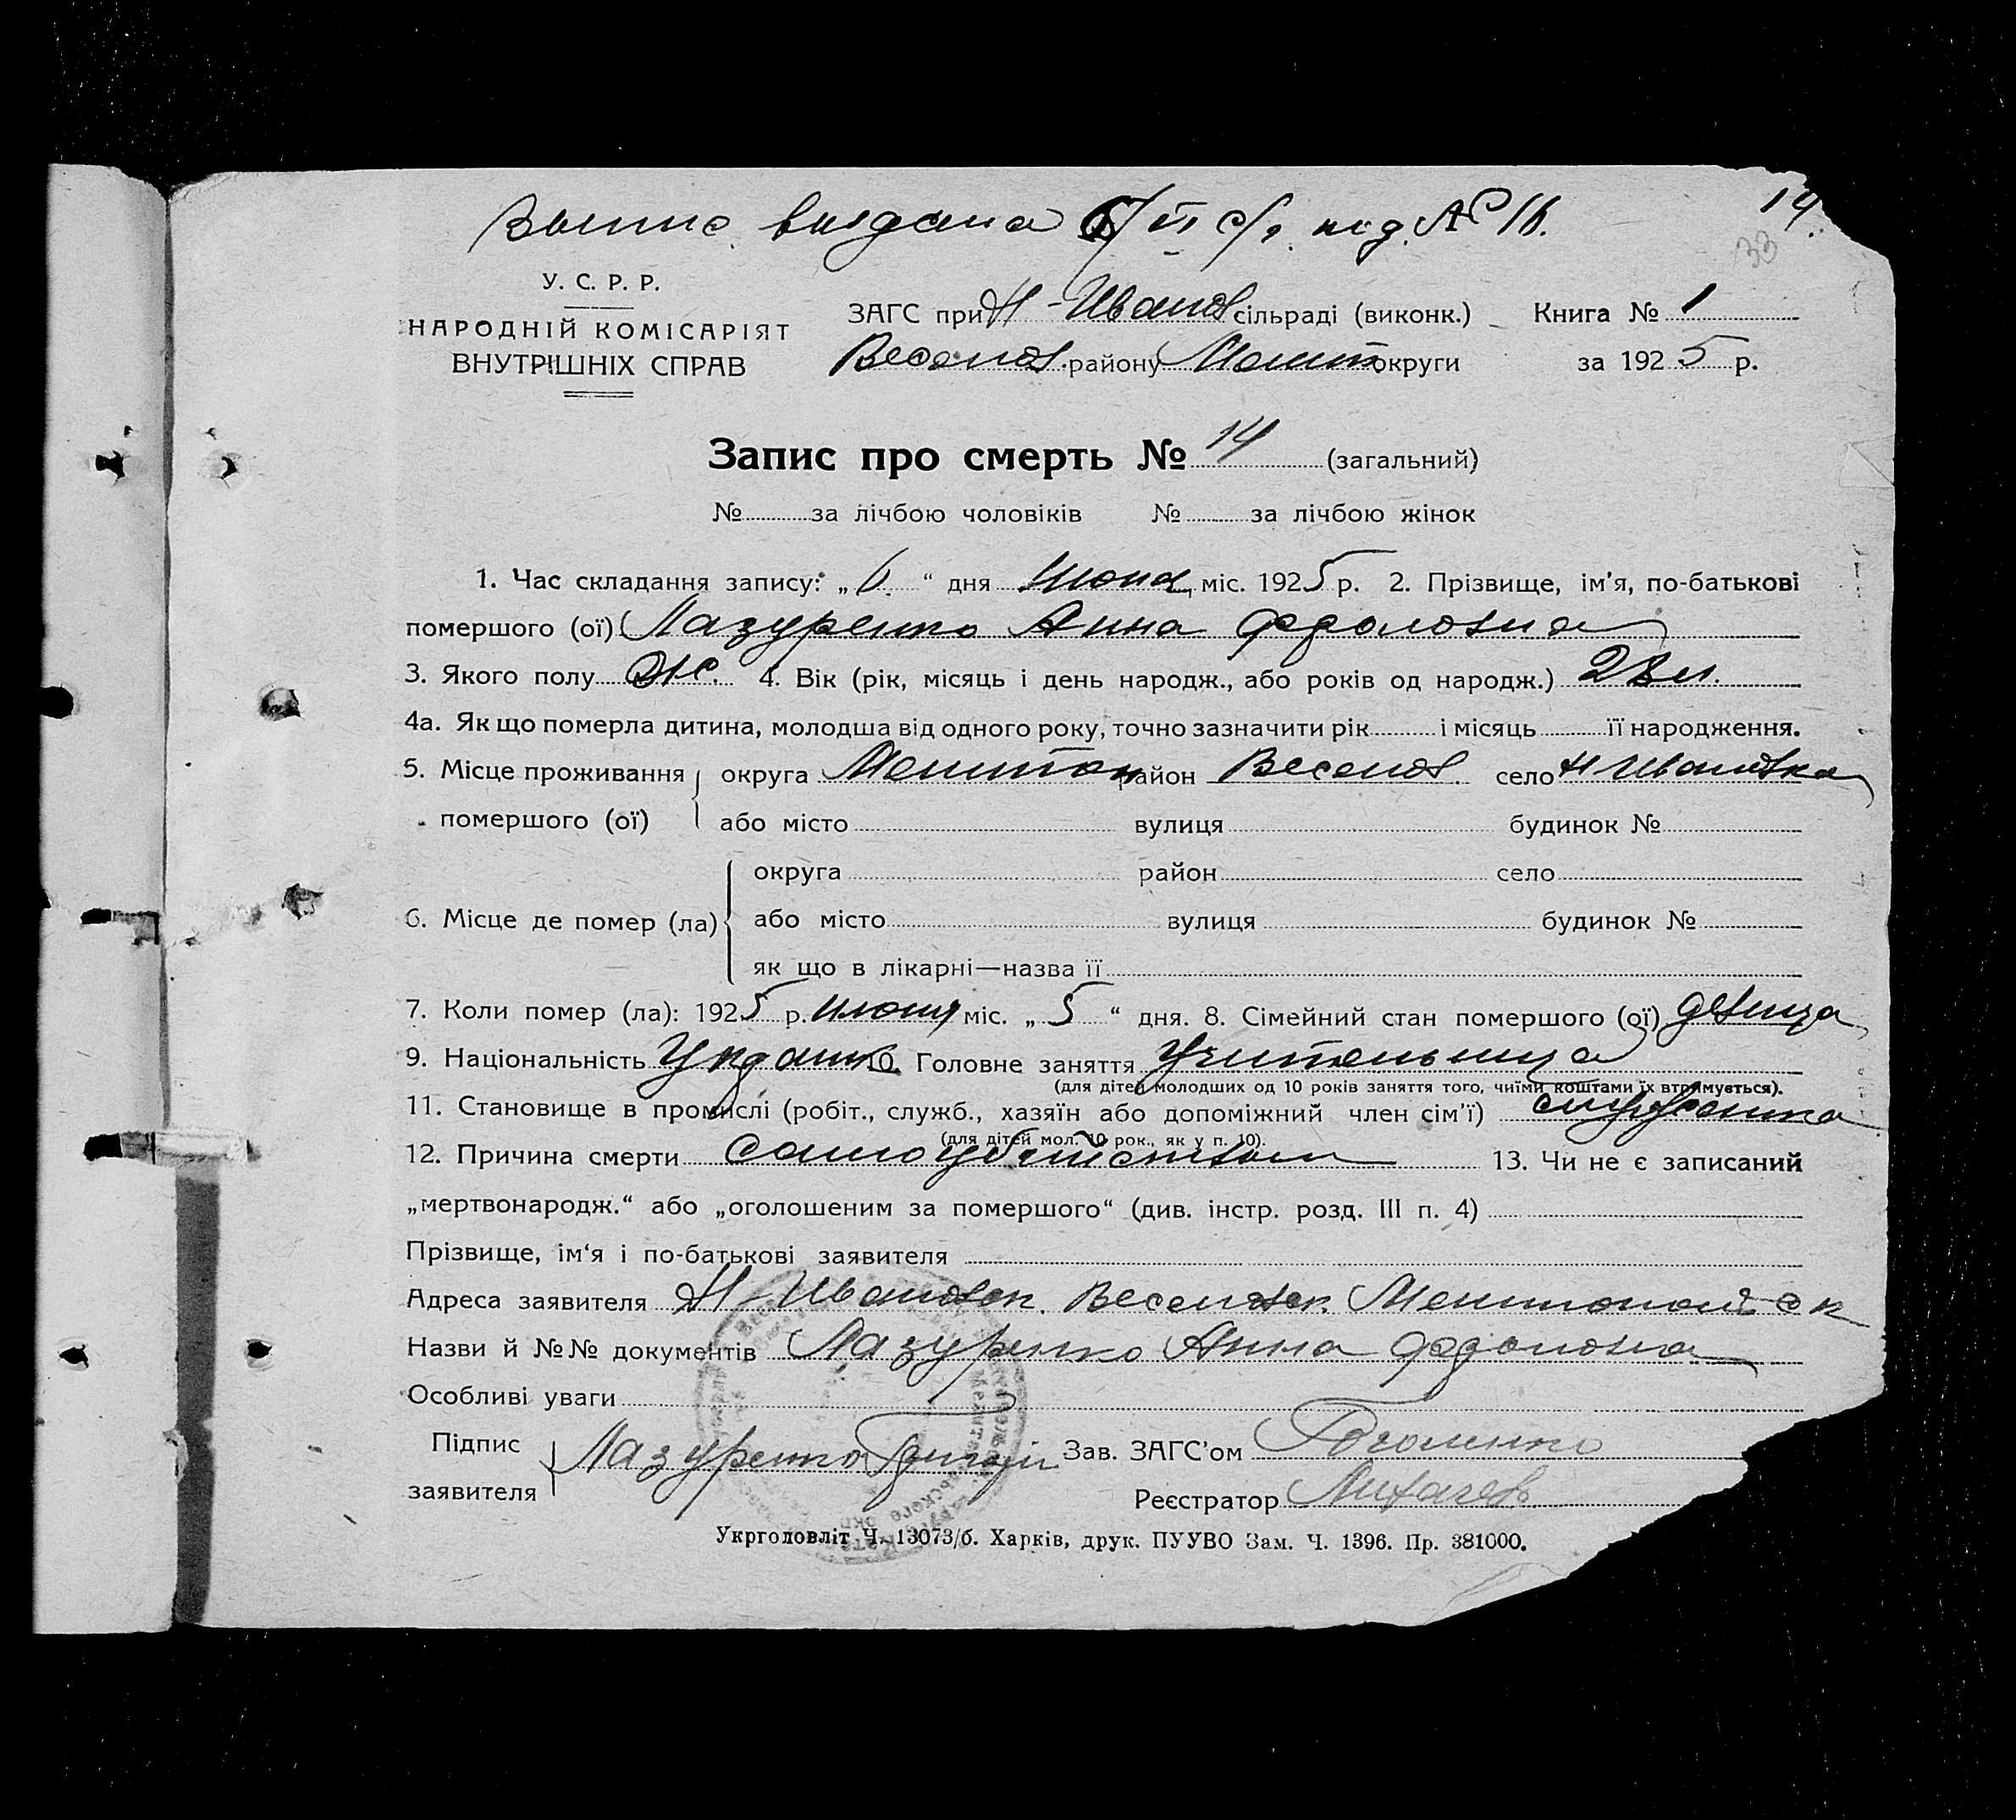 Выпис выдана 6/VI с/г. под № 16.
14.
33
У. С. Р. Р.
НАРОДНІЙ КОМІСАРІЯТ
ВНУТРІШНІХ СПРАВ
ЗАГС при Н-Иванов сільраді (виконк.) Книга № 1
Веселов. району Мелит округи за 1925 р.
Запис про смерть № 14 (загальний)
№ за лічбою чоловіків № за лічбою жінок
1. Час складання запису: „6“ дня Июня міс. 1925 р. 2. Прізвище, ім'я, по-батькові
помершого (ої) Лазуренко Анна
3. Якого полу Ж. 4. Вік (рік, місяць і день народж., або років од народж.) 28 л.
4а. Як що померла дитина, молодша від одного року, точно зазначити рік і місяць її народження.
5. Місце проживання округа Мелитоп район Веселов. село Н Ивановка
помершого (ої) або місто вулиця будинок №
округа район село
6. Місце де помер (ла) або місто вулиця будинок №
як що в лікарні—назва її
7. Коли помер (ла): 1925 р. июня міс. „5“ дня. 8. Сімейний стан помершого (ої) девица
9. Національність 10. Головне заняття Учительница
(для дітей молодших од 10 років заняття того, чиїми коштами їх втримується).
11. Становище в промислі (робіт., служб., хазяїн або допоміжний член сім'ї) служанка
(для дітей мол. 10 рок., як у п. 10).
12. Причина смерти самоубийством 13. Чи не є записаний
„мертвонародж.“ або „оголошеним за помершого“ (див. інстр. розд. III п. 4)
Прізвище, ім'я і по-батькові заявителя
Адреса заявителя Н-Ивановск. Веселовск.
Назви й №№ документів Лазуренко Анна
Особливі уваги
Підпис Лазуренко Зав. ЗАГС'ом
заявителя
Реєстратор Лихачев
Укрголовліт Ч. 13073/б. Харків, друк. ПУУВО Зам. Ч. 1396. Пр. 381000.